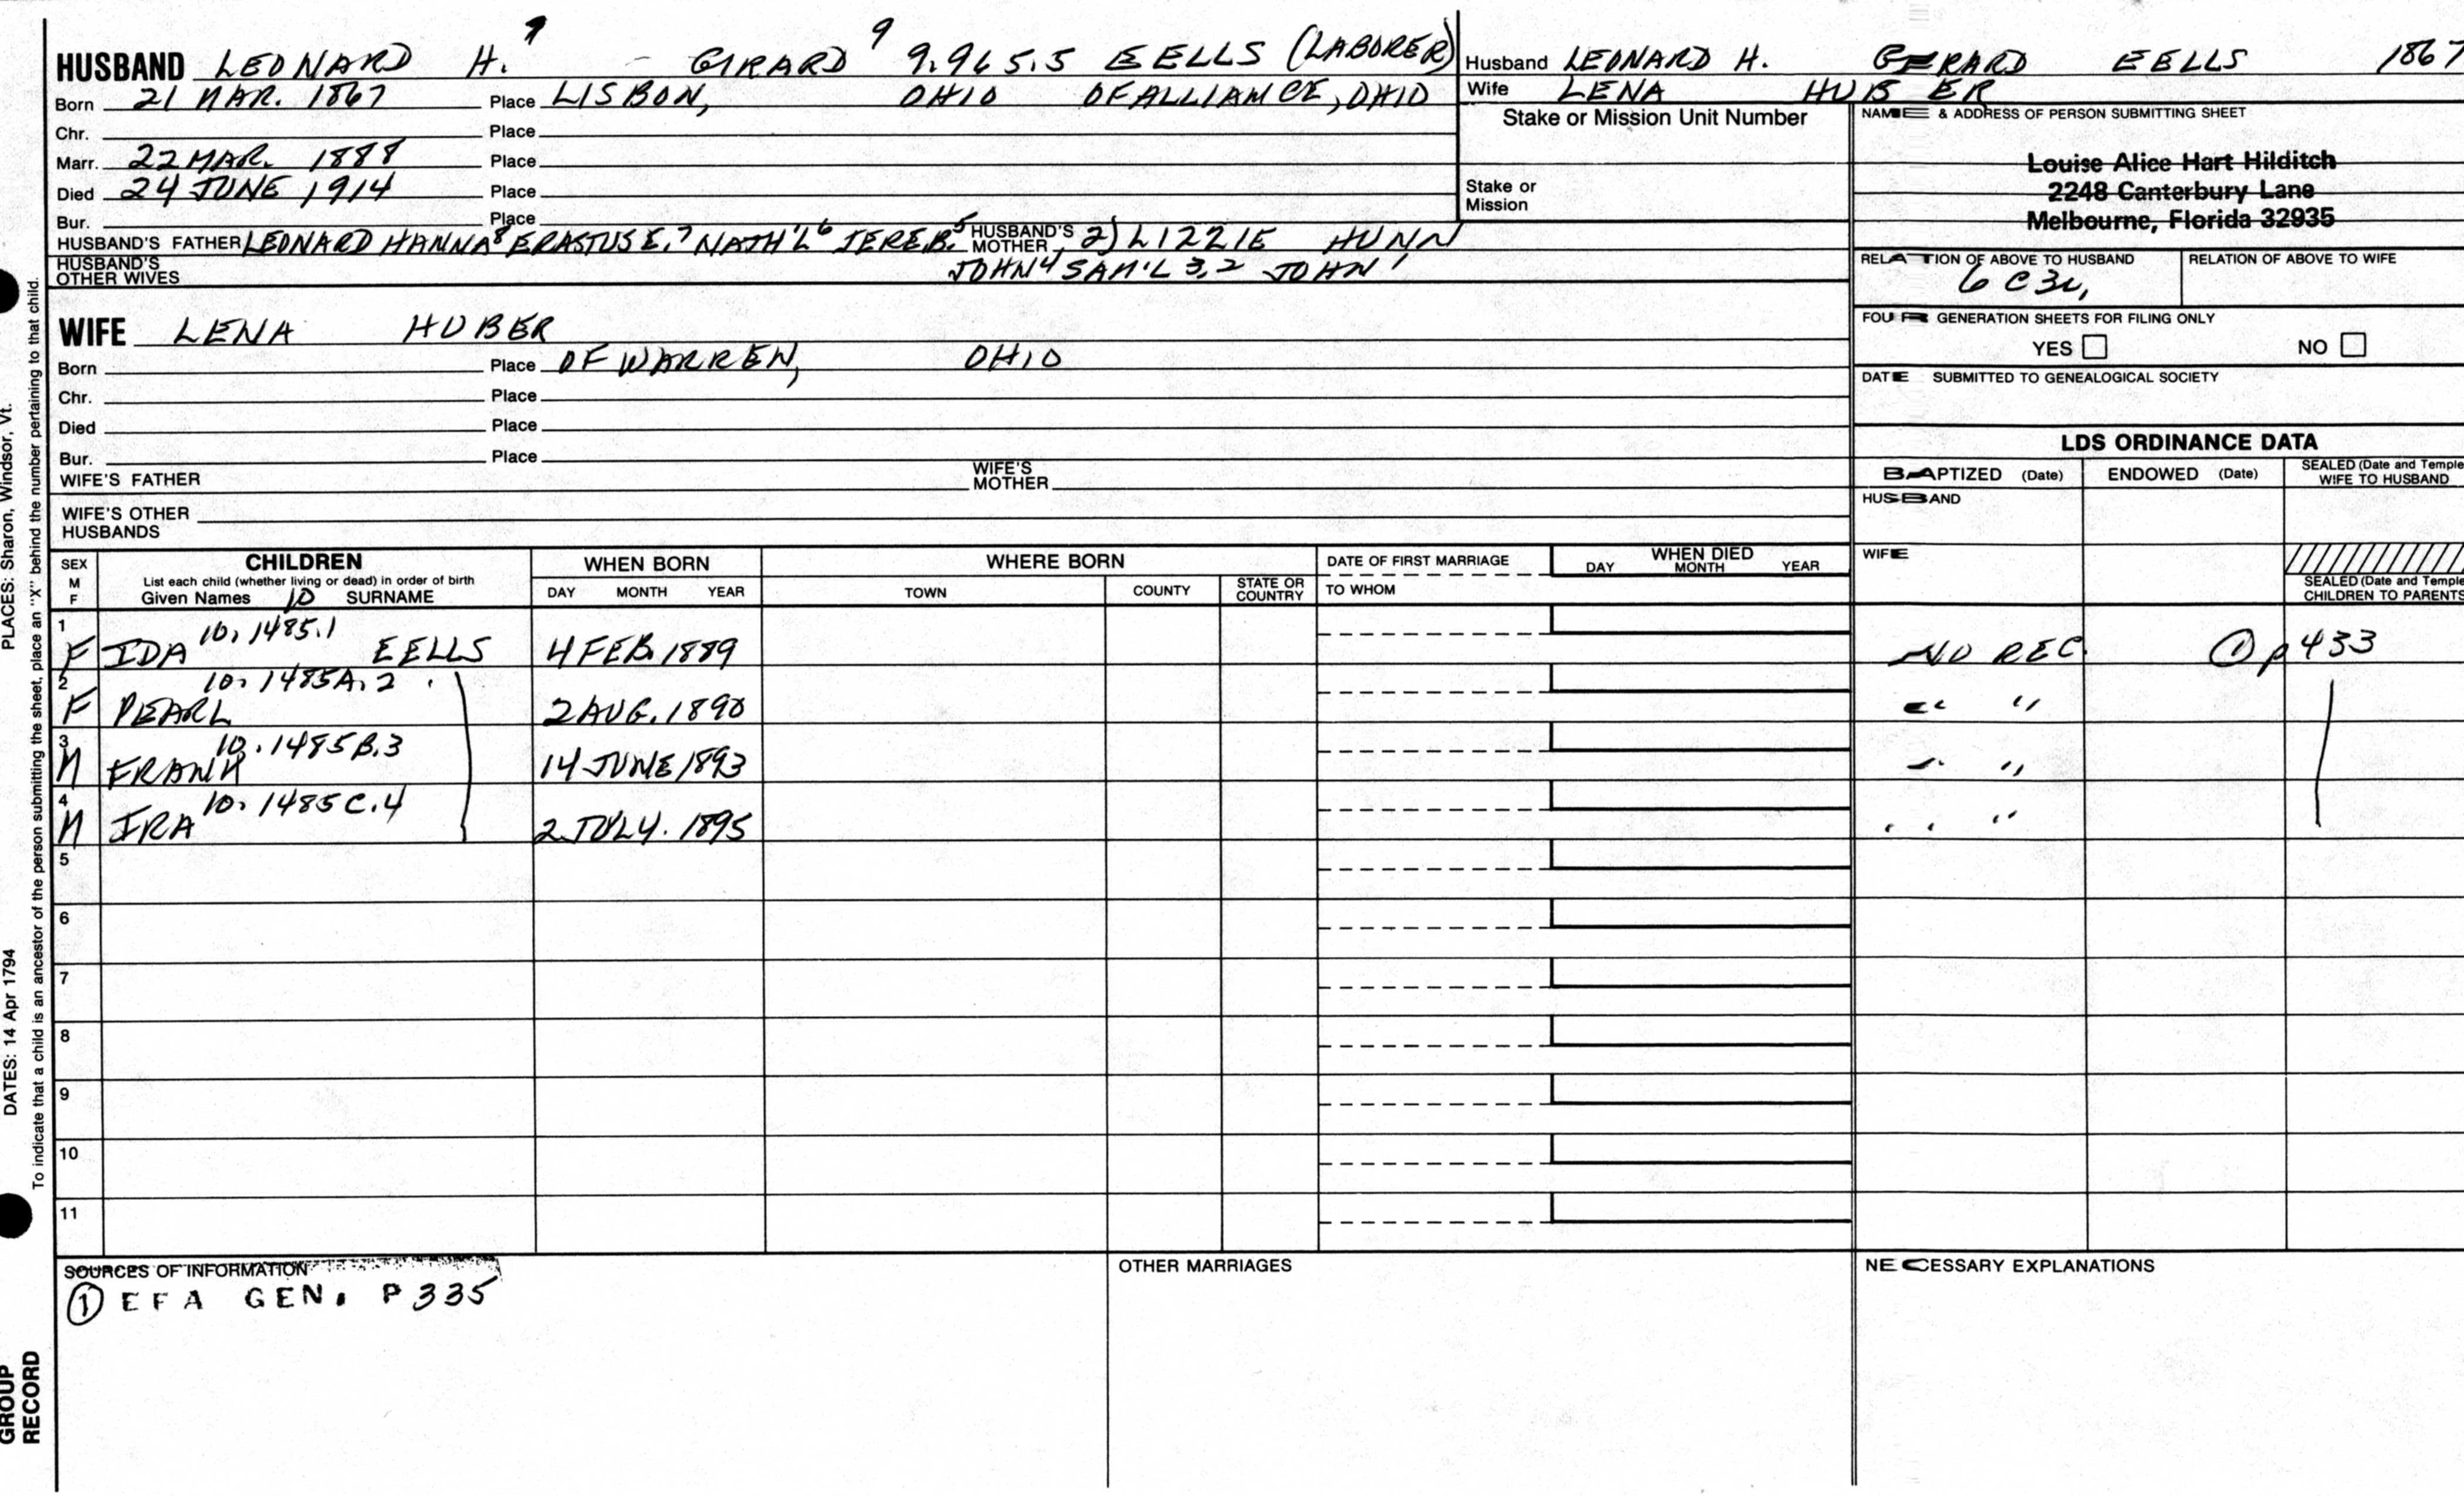 HUSBAND LEONARD H. 9 - GIRARD 9 9.965.5 EELLS (LABORER)
Born 21 MAR. 1867 Place LISBON, OHIO OF ALLIANCE, OHIO
Chr. Place
Marr. 22 MAR. 1888 Place
Died 24 JUNE 1914 Place
Bur. Place
HUSBAND'S FATHER LEONARD HANNA8 ERASTUS E.7 NATH'L6 JERE.B.5 HUSBAND'S MOTHER 2) LIZZIE HUNN
HUSBAND'S OTHER WIVES JOHN4 SAM'L 3,2 JOHN1
Husband LEONARD H. GERARD EELLS 1867
Wife LENA HUBER
Stake or Mission Unit Number
Stake or Mission
NAME & ADDRESS OF PERSON SUBMITTING SHEET
Louise Alice Hart Hilditch
2248 Canterbury Lane
Melbourne, Florida 32935
RELATION OF ABOVE TO HUSBAND RELATION OF ABOVE TO WIFE
6 C 3r,
FOUR GENERATION SHEETS FOR FILING ONLY
YES NO
DATE SUBMITTED TO GENEALOGICAL SOCIETY
WIFE LENA HUBER
Born Place OF WARREN, OHIO
Chr. Place
Died Place
Bur. Place
WIFE'S FATHER WIFE'S MOTHER
WIFE'S OTHER HUSBANDS
LDS ORDINANCE DATA
BAPTIZED (Date) ENDOWED (Date) SEALED (Date and Temple WIFE TO HUSBAND
HUSBAND
WIFE
SEALED (Date and Temple CHILDREN TO PARENTS
SEX M F
CHILDREN
List each child (whether living or dead) in order of birth
Given Names 10 SURNAME
WHEN BORN
DAY MONTH YEAR
WHERE BORN
TOWN COUNTY STATE OR COUNTRY
DATE OF FIRST MARRIAGE
TO WHOM
WHEN DIED
DAY MONTH YEAR
1 F IDA 10.1485.1 EELLS 4 FEB. 1889 NO REC. ① p 433
2 F PEARL 10.1485A.2 2 AUG. 1890 " "
3 M FRANK 10.1485B.3 14 JUNE 1893 " "
4 M IRA 10.1485C.4 2 JULY. 1895 " "
5
6
7
8
9
10
11
SOURCES OF INFORMATION
① EFA GEN. P335
OTHER MARRIAGES
NECESSARY EXPLANATIONS
PLACES: Sharon, Windsor, Vt.
DATES: 14 Apr 1794
To indicate that a child is an ancestor of the person submitting the sheet, place an "X" behind the number pertaining to that child.
GROUP
RECORD